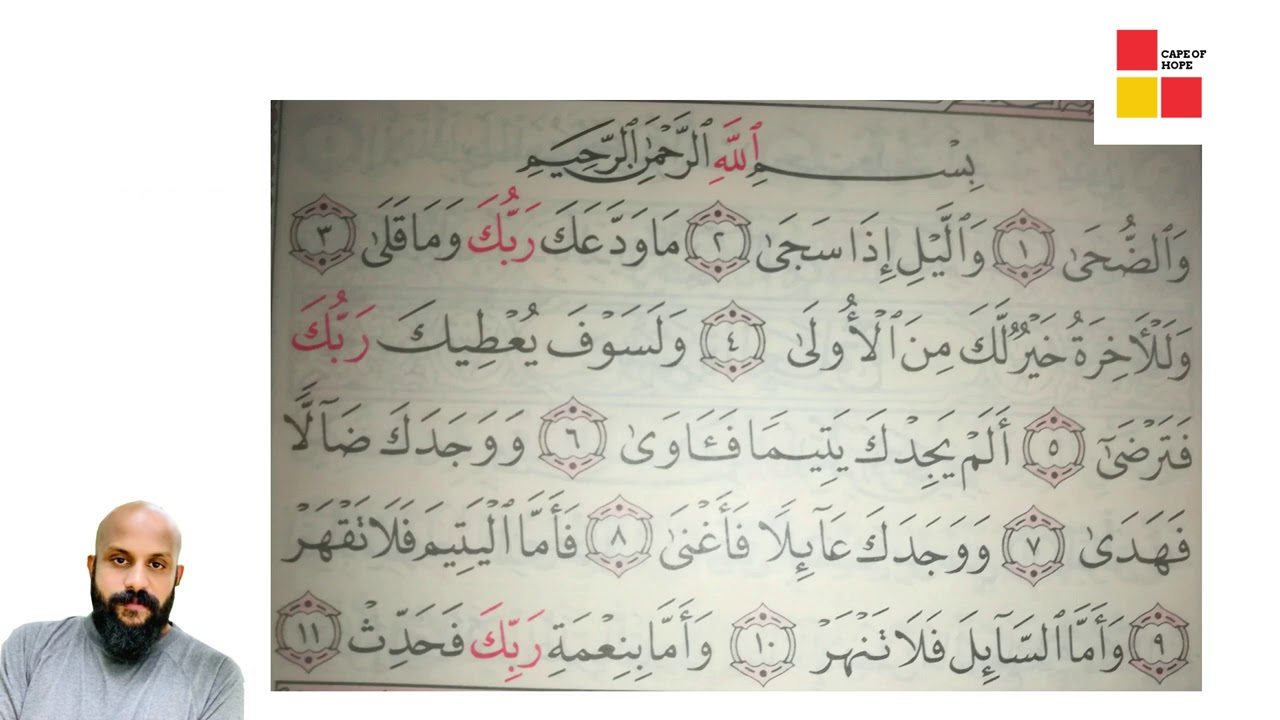 CAPE OF
HOPE
بِسْمِ ٱللَّهِ ٱلرَّحْمَٰنِ ٱلرَّحِيمِ
وَٱلضُّحَىٰ ١ وَٱلَّيْلِ إِذَا سَجَىٰ ٢ مَا وَدَّعَكَ رَبُّكَ وَمَا قَلَىٰ ٣
وَلَلْأَخِرَةُ خَيْرٌ لَّكَ مِنَ ٱلْأُولَىٰ ٤ وَلَسَوْفَ يُعْطِيكَ رَبُّكَ
فَتَرْضَىٰٓ ٥ أَلَمْ يَجِدْكَ يَتِيمًا فَـَٔاوَىٰ ٦ وَوَجَدَكَ ضَآلًّا
فَهَدَىٰ ٧ وَوَجَدَكَ عَآئِلًا فَأَغْنَىٰ ٨ فَأَمَّا ٱلْيَتِيمَ فَلَا تَقْهَرْ
٩ وَأَمَّا ٱلسَّآئِلَ فَلَا تَنْهَرْ ١٠ وَأَمَّا بِنِعْمَةِ رَبِّكَ فَحَدِّثْ ١١